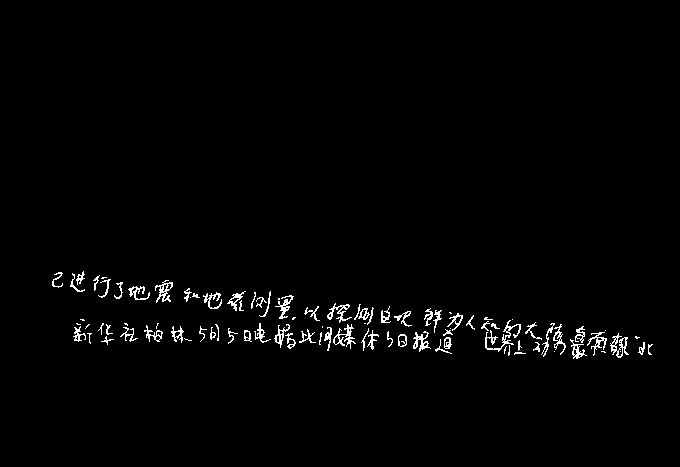 已进行了地震和地磁测量,以探测这块鲜为人知的大陆
新华社柏林5月5日电据此间媒体5日报道 世界上 最